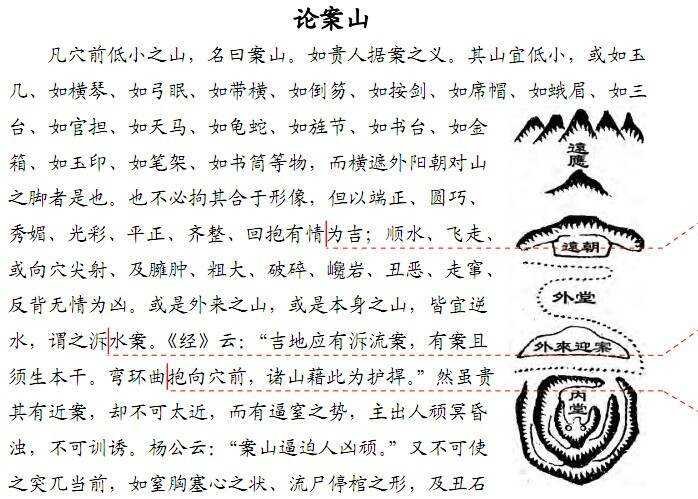 论案山
凡穴前低小之山，名曰案山。如贵人据案之义。其山宜低小，或如玉
几、如横琴、如弓眠、如带横、如倒笏、如按剑、如席帽、如蛾眉、如三
台、如官担、如天马、如龟蛇、如旌节、如书台、如金
箱、如玉印、如笔架、如书筒等物，而横遮外阳朝对山
之脚者是也。也不必拘其合于形像，但以端正、圆巧、
秀媚、光彩、平正、齐整、回抱有情为吉；顺水、飞走、
或向穴尖射、及臃肿、粗大、破碎、巉岩、丑恶、走窜、
反背无情为凶。或是外来之山，或是本身之山，皆宜逆
水，谓之泝水案。《经》云：“吉地应有泝流案，有案且
须生本干。穹环曲抱向穴前，诸山藉此为护捍。”然虽贵
其有近案，却不可太近，而有逼窒之势，主出人顽冥昏
浊，不可训诱。杨公云：“案山逼迫人凶顽。”又不可使
之突兀当前，如窒胸塞心之状、流尸停棺之形，及丑石
遠應
遠朝
外堂
外來迎案
内堂